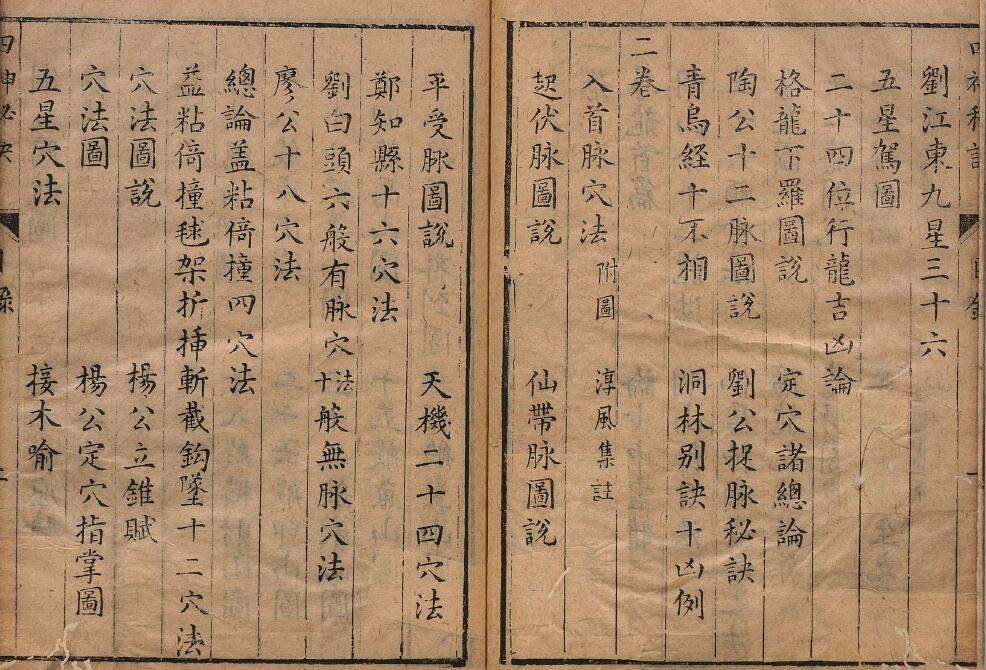 劉江東九星三十六
五星駕圖
二十四位行龍吉凶論
格龍下羅圖說 定穴諸總論
陶公十二脉圖說 劉公捉脉秘訣
青烏經十不相 洞林别訣十凶例
二卷
入首脉穴法 附圖 淳風集註
起伏脉圖說 仙帶脉圖說
平受脉圖說 天機二十四穴法
鄭知縣十六穴法
劉白頭六般有脉穴法 十般無脉穴法
廖公十八穴法
總論蓋粘倚撞四穴法
益粘倚撞毬架折揷斬截鈎墜十二穴法
穴法圖說 楊公立錐賦
穴法圖 楊公定穴指掌圖
五星穴法 接木喻